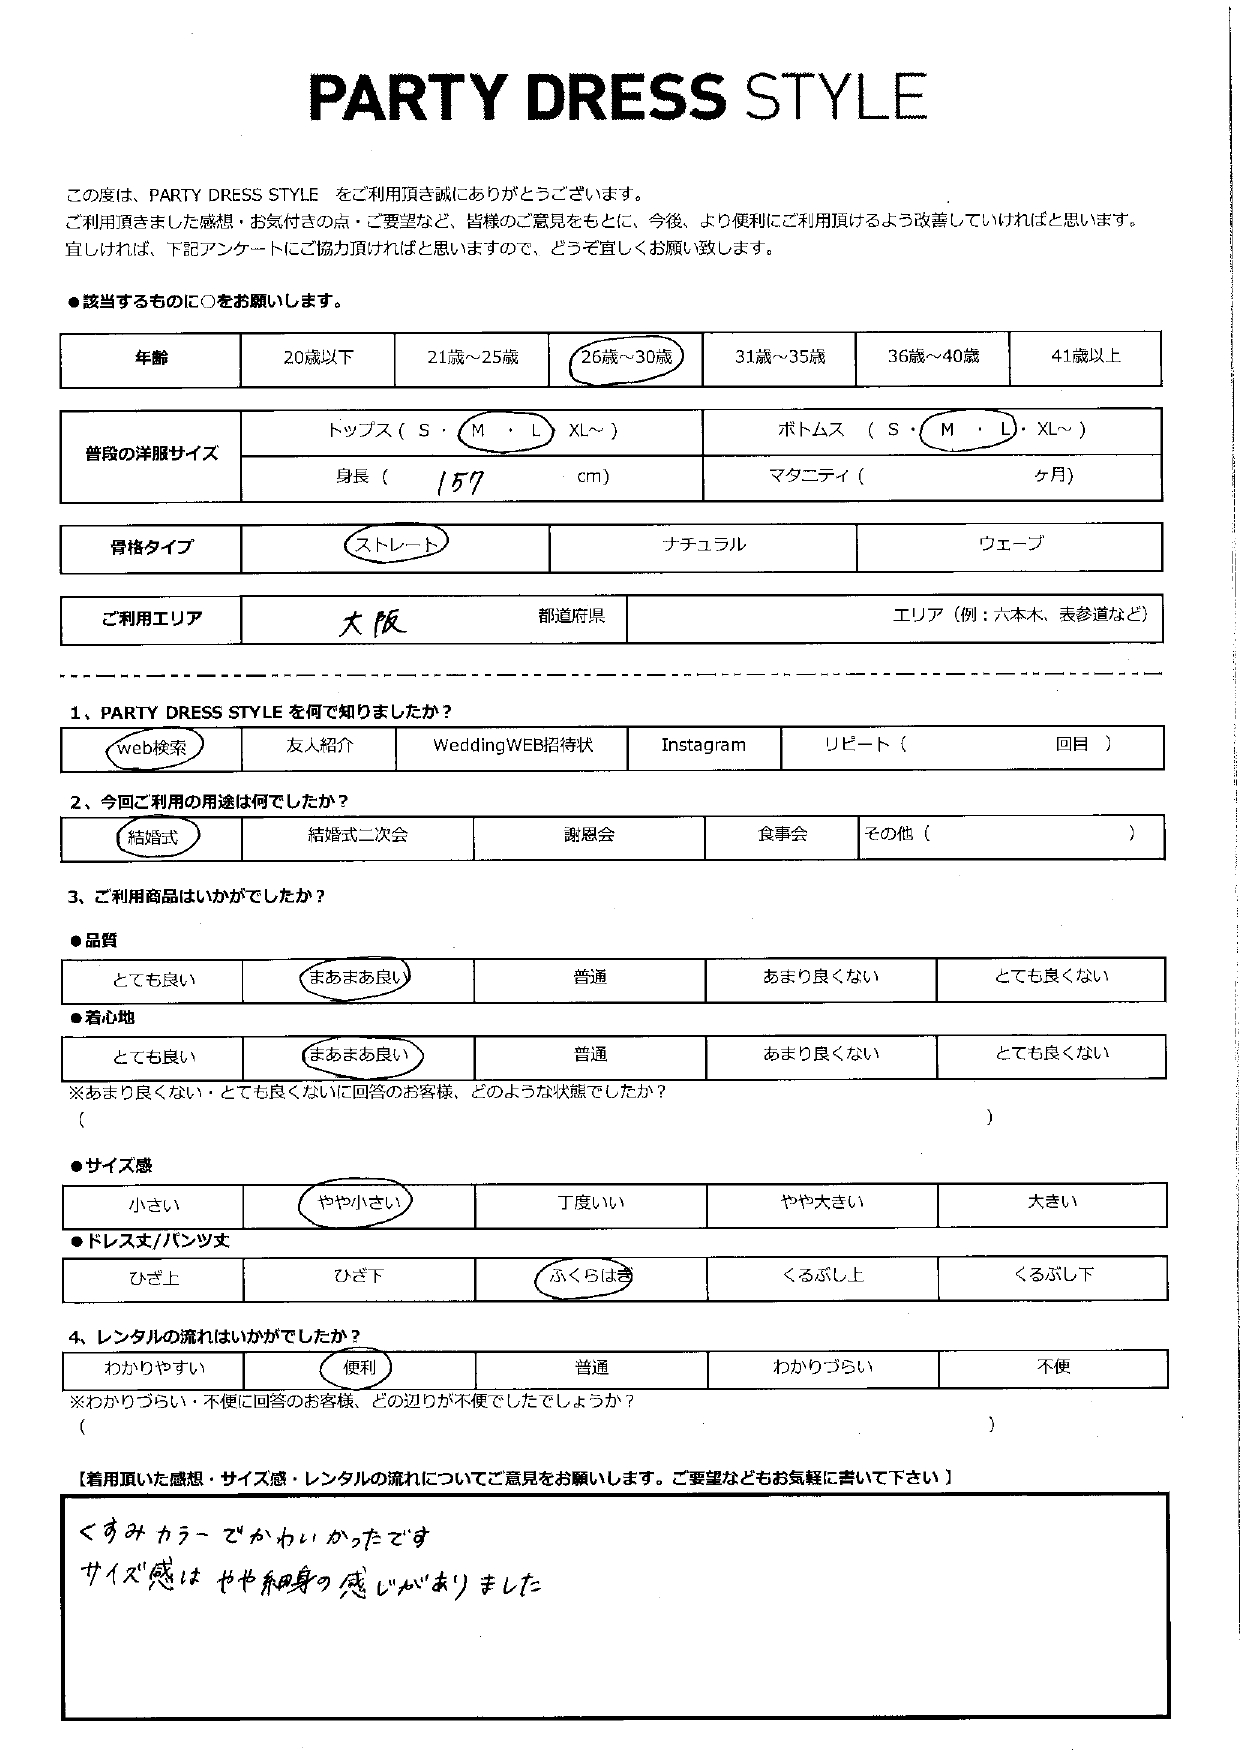 PARTY DRESS STYLE
この度は、PARTY DRESS STYLE をご利用頂き誠にありがとうございます。
ご利用頂きました感想・お気付きの点・ご要望など、皆様のご意見をもとに、今後、より便利にご利用頂けるよう改善していければと思います。
宜しければ、下記アンケートにご協力頂ければと思いますので、どうぞ宜しくお願い致します。
●該当するものに○をお願いします。
年齢 20歳以下 21歳～25歳 26歳～30歳 31歳～35歳 36歳～40歳 41歳以上
普段の洋服サイズ トップス ( S ・ M ・ L ・ XL～ ) ボトムス ( S ・ M ・ L ・ XL～ )
身長 ( 157 cm) マタニティ ( ヶ月)
骨格タイプ ストレート ナチュラル ウェーブ
ご利用エリア 大阪 都道府県 エリア（例：六本木、表参道など）
1、PARTY DRESS STYLE を何で知りましたか？
web検索 友人紹介 WeddingWEB招待状 Instagram リピート（ 回目 ）
2、今回ご利用の用途は何でしたか？
結婚式 結婚式二次会 謝恩会 食事会 その他（ ）
3、ご利用商品はいかがでしたか？
●品質
とても良い まあまあ良い 普通 あまり良くない とても良くない
●着心地
とても良い まあまあ良い 普通 あまり良くない とても良くない
※あまり良くない・とても良くないに回答のお客様、どのような状態でしたか？
( )
●サイズ感
小さい やや小さい 丁度いい やや大きい 大きい
●ドレス丈/パンツ丈
ひざ上 ひざ下 ふくらはぎ くるぶし上 くるぶし下
4、レンタルの流れはいかがでしたか？
わかりやすい 便利 普通 わかりづらい 不便
※わかりづらい・不便に回答のお客様、どの辺りが不便でしたでしょうか？
( )
【着用頂いた感想・サイズ感・レンタルの流れについてご意見をお願いします。ご要望などもお気軽に書いて下さい 】
くすみカラーでかわいかったです
サイズ感は やや細身の感じがありました